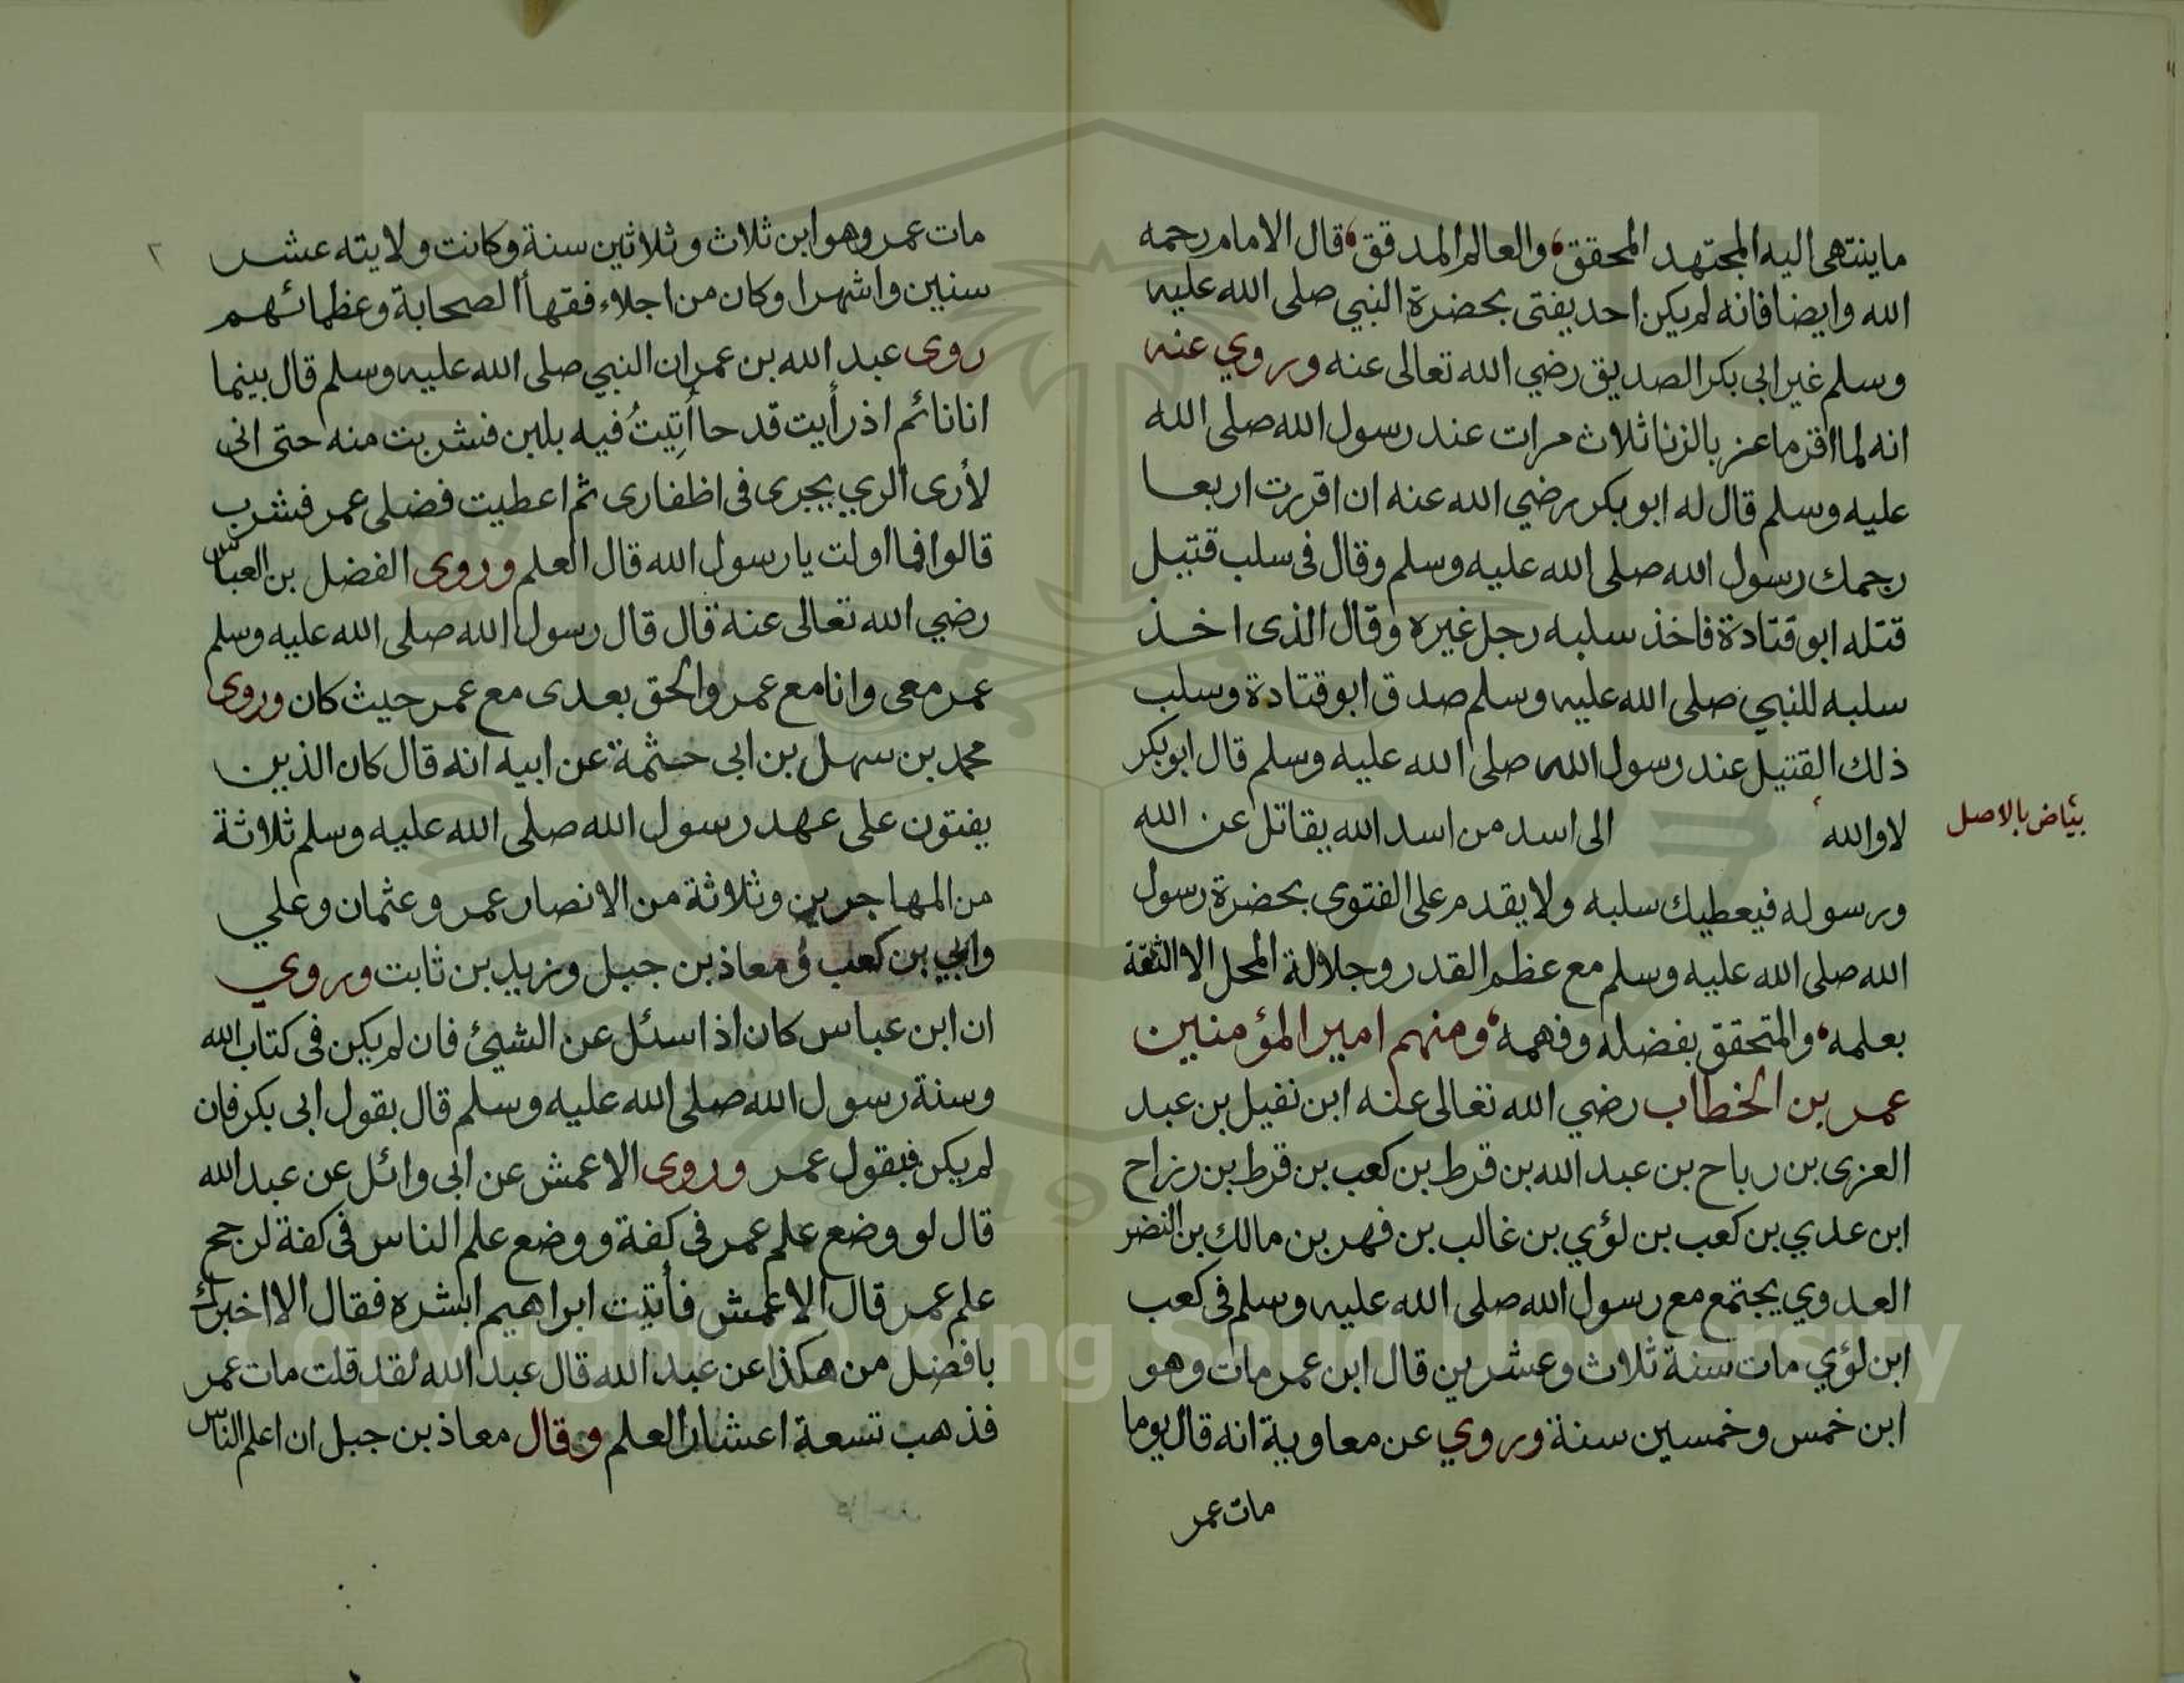 ما ينتهى اليه المجتهد المحقق، والعالم المدقق، قال الامام رحمه
الله وايضا فانه لم يكن احد يفتى بحضرة النبي صلى الله عليه
وسلم غير ابى بكر الصديق رضي الله تعالى عنه وروي عنه
انه لما اقر ماعز بالزنا ثلاث مرات عند رسول الله صلى الله
عليه وسلم قال له ابو بكر رضي الله عنه ان اقررت اربعا
رجمك رسول الله صلى الله عليه وسلم وقال فى سلب قتيل
قتله ابو قتادة فاخذ سلبه رجل غيره وقال الذى اخذ
سلبه للنبي صلى الله عليه وسلم صدق ابو قتادة وسلب
ذلك القتيل عند رسول الله صلى الله عليه وسلم قال ابو بكر
لا والله الى اسد من اسد الله يقاتل عن الله
بياض بالاصل
ورسوله فيعطيك سلبه ولا يقدم على الفتوى بحضرة رسول
الله صلى الله عليه وسلم مع عظم القدر وجلالة المحل الا الثقة
بعلمه، والمتحقق بفضله وفهمه، ومنهم امير المؤمنين
عمر بن الخطاب رضي الله تعالى عنه ابن نفيل بن عبد
العزى بن رباح بن عبد الله بن قرط بن كعب بن قرط بن رزاح
ابن عدي بن كعب بن لؤي بن غالب بن فهر بن مالك بن النضر
العدوي يجتمع مع رسول الله صلى الله عليه وسلم فى كعب
ابن لؤي مات سنة ثلاث وعشرين قال ابن عمر مات وهو
ابن خمس وخمسين سنة وروي عن معاوية انه قال يوما
مات عمر
٢
مات عمر وهو ابن ثلاث وثلاثين سنة وكانت ولايته عشر
سنين واشهرا وكان من اجلاء فقهاأ الصحابة وعظمائهم
روى عبد الله بن عمر ان النبي صلى الله عليه وسلم قال بينما
انا نائم اذ رأيت قدحا أُتِيتُ فيه بلبن فشربت منه حتى انى
لأرى الري يجرى فى اظفارى ثم اعطيت فضلى عمر فشرب
قالوا فما اولت يا رسول الله قال العلم وروى الفضل بن العباس
رضي الله تعالى عنه قال قال رسول الله صلى الله عليه وسلم
عمر معى وانا مع عمر والحق بعدى مع عمر حيث كان وروى
محمد بن سهل بن ابى حثمة عن ابيه انه قال كان الذين
يفتون على عهد رسول الله صلى الله عليه وسلم ثلاثة
من المهاجرين وثلاثة من الانصار عمر وعثمان وعلي
وابي بن كعب ومعاذ بن جبل وزيد بن ثابت وروي
ان ابن عباس كان اذا سئل عن الشيئ فان لم يكن فى كتاب الله
وسنة رسول الله صلى الله عليه وسلم قال بقول ابى بكر فان
لم يكن فبقول عمر وروى الاعمش عن ابى وائل عن عبد الله
قال لو وضع علم عمر فى كفة ووضع علم الناس فى كفة لرجح
علم عمر قال الاعمش فأتيت ابراهيم ابشره فقال الا اخبرك
بافضل من هكذا عن عبد الله قال عبد الله لقد قلت مات عمر
فذهب تسعة اعشار العلم وقال معاذ بن جبل ان اعلم الناس
Copyright © King Saud University